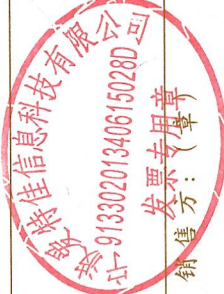 波特佳信息科技有限公司
91330201340615028D
发票专用章
销售方：（章）